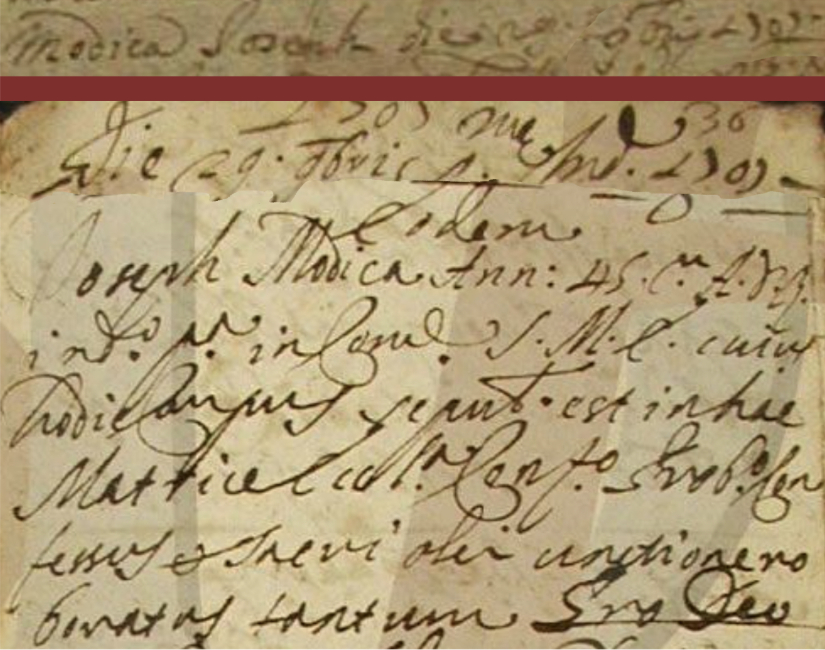 Modica Joseph die 29. 9bris 1707
1707 me 36
Die 29. 9bris p. Ind. 1707
Eodem
Joseph Modica Ann: 45. C.m A.
ind.o in Com.e S. M. E. cuius
hodie Corpus sepult. est in hac
Matrice Eccl.a Conf.o Con
fessus & Sacri olei unctione ro
boratus tantum Pro Deo